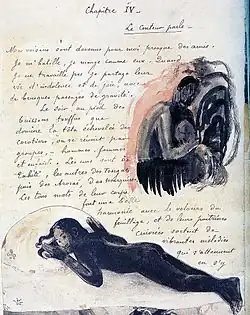 Chapitre IV
Le Conteur parle
Mes voisins sont devenus pour moi presque des amis.
Je m'habille, je mange comme eux. Quand
je ne travaille pas je partage leur
vie d'indolence et de joie, avec
de brusques passages de gravité.
Le soir au pied des
buissons touffus que
domine la tête échevelée des
cocotiers, on se réunit par
groupes, hommes, femmes
et enfants. Les uns sont de
Tahiti, les autres des Tongas
puis des Arorai, des Marquises.
Les tons mats de leur corps
font une belle
harmonie avec le velours du
feuillage, et de leurs poitrines
cuivrées sortent de
vibrantes mélodies
qui s'atténuent
en s'y